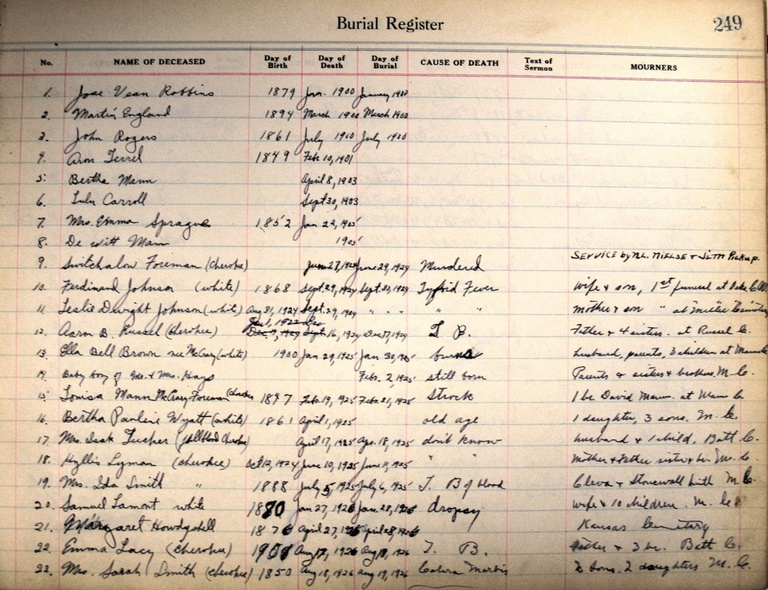 Burial Register
249
No. NAME OF DECEASED Day of Birth Day of Death Day of Burial CAUSE OF DEATH Text of Sermon MOURNERS
1. Jose Vean Robbins 1879 Jan. 1900 January 1900
2. Martin England 1894 March 1900 March 1900
3. John Rogers 1861 July 1910 July 1910
4. Aron Terrel 1849 Feb 10, 1901
5. Bertha Mann April 8, 1903
6. Lulu Carroll Sept 30, 1903
7. Mrs. Emma Sprague 1852 Jan 22, 1905
8. De witt Mann 1905
9. Switchalow Foreman (cherokee) June 27, 1924 June 29, 1924 Murdered SERVICE by
10. Ferdinand Johnson (white) 1868 Sept. 29, 1924 Sept. 30, 1924 Tyfoid Fever wife & son, 1st funeral at
11. Leslie Dwight Johnson (white) Aug 31, 1924 Sept. 29, 1924 " " " " " mother & son " at
12. Aaron B. Russel (cherokee) 16, 1924 Dec 17, 1924 T. B. Father & 4 sisters. at Russel C.
13. Ella Bell Brown nee McCray (white) 1900 Jan 29, 1925 Jan 30, 1925 burns husband, parents, 3 children at
14. Baby boy of Geo. & Mrs. Hays Feb. 2, 1925 still born Parents & sisters & brothers M. C.
15. Louisa Mann McCray Foreman 1877 Feb 19, 1925 Feb 21, 1925 Strock 1 br. David Mann at Mann C.
16. Bertha Pauline Wyatt (white) 1861 April 1, 1925 old age 1 daughter, 3 sons. M. C.
17. Mrs. Tucker (fullblood Cherokee) April 17, 1925 Apr. 18, 1925 don't know husband & 1 child, Batt C.
18. Hyllis Lyman (cherokee) Oct 12, 1924 June 10, 1925 June 11, 1925 " " Mother & Father sister & br. M. C.
19. Mrs. Ida Smith " 1888 July 5, 1925 July 6, 1925 T. B of blood Cleva & Stonewall Smith M. C.
20. Samuel Lamont white 1880 Jan 27, 1926 Jan. 28, 1926 dropsy wife & 10 children. M. C.
21. Margaret Howdyshell 1876 April 27, 1926 April 28, 1926 Kansas Cemetery
22. Emma Lacy (cherokee) 1901 Aug 17, 1926 Aug 18, 1926 T. B. Father & 2 br. Batt C.
23. Mrs. Sarah Smith (cherokee) 1850 Aug 18, 1926 Aug 19, 1926 Colera Morbis 2 sons. 2 daughters M. C.